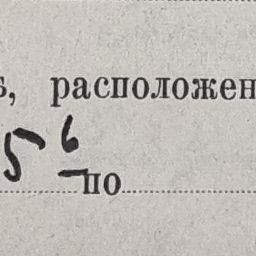 ъ, расположен
5 6
по